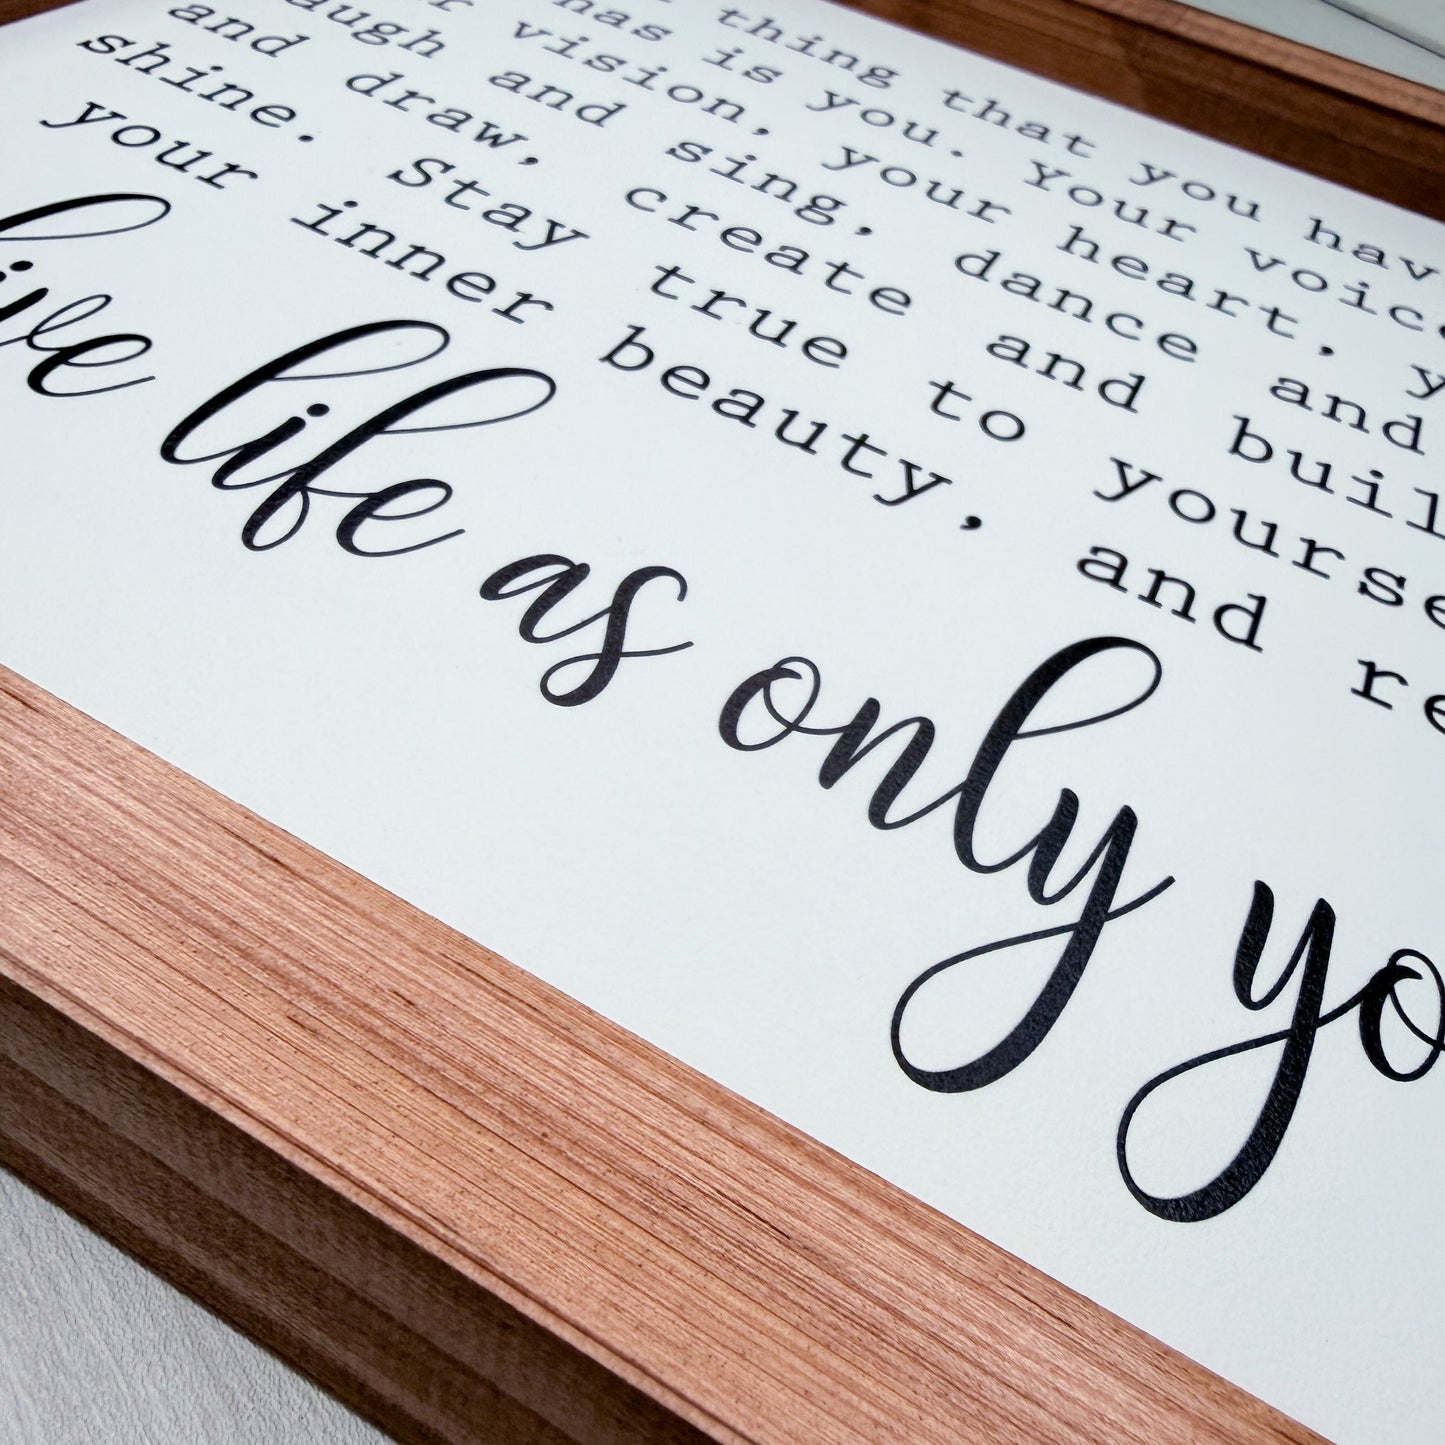 thing that you hav
has is you. Your voice
vision, your heart, y
augh and sing, dance and
and draw, create and buil
shine. Stay true to yourse
your inner beauty, and re
live life as only yo